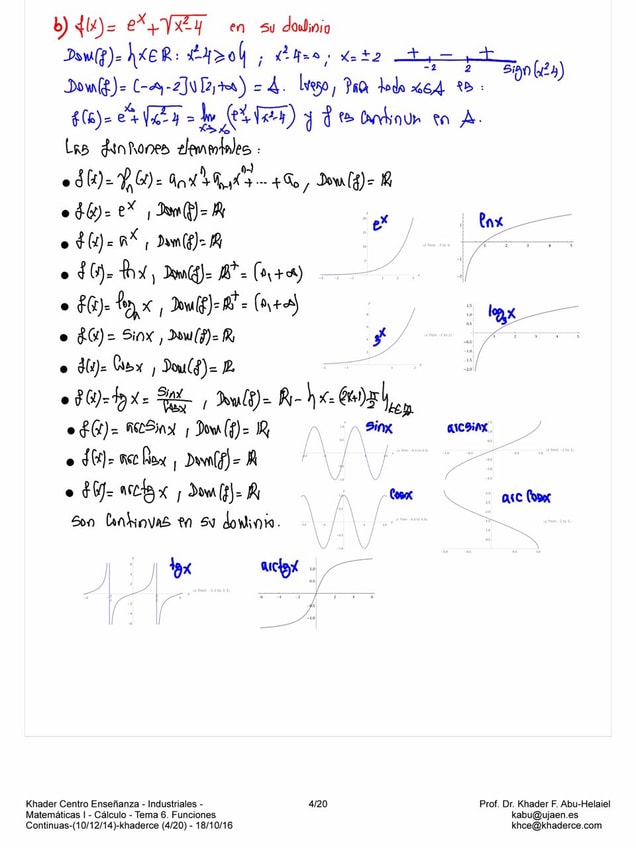 b) f(x) = e^x + √(x²-4) en su dominio
Dom(f) = {x∈R : x²-4 ≥ 0} ; x²-4=0 ; x=±2 + - + -2 2 Sign(x²-4)
Dom(f) = (-∞,-2]∪[2,+∞) = A. Luego, para todo x₀∈A es:
f(x₀) = e^x₀ + √(x₀²-4) = lim x→x₀ (e^x + √(x²-4)) y f es continua en A.
Las funciones elementales:
• f(x) = Pₙ(x) = aₙxⁿ + aₙ₋₁xⁿ⁻¹ + ... + a₀, Dom(f) = R
• f(x) = e^x, Dom(f) = R
• f(x) = a^x, Dom(f) = R
• f(x) = ln x, Dom(f) = R⁺ = (0,+∞)
• f(x) = logₐ x, Dom(f) = R⁺ = (0,+∞)
• f(x) = sin x, Dom(f) = R
• f(x) = cos x, Dom(f) = R
• f(x) = tg x = sin x / cos x, Dom(f) = R - {x = (2k+1) π/2} k∈Z
• f(x) = arcsin x, Dom(f) = R
• f(x) = arc cos x, Dom(f) = R
• f(x) = arctg x, Dom(f) = R
son continuas en su dominio.
e^x
ln x
3^x
log₃x
sin x
arcsin x
cos x
arc cos x
tg x
arctg x
Khader Centro Enseñanza - Industriales -
Matemáticas I - Cálculo - Tema 6. Funciones
Continuas-(10/12/14)-khaderce (4/20) - 18/10/16
4/20
Prof. Dr. Khader F. Abu-Helaiel
kabu@ujaen.es
khce@khaderce.com